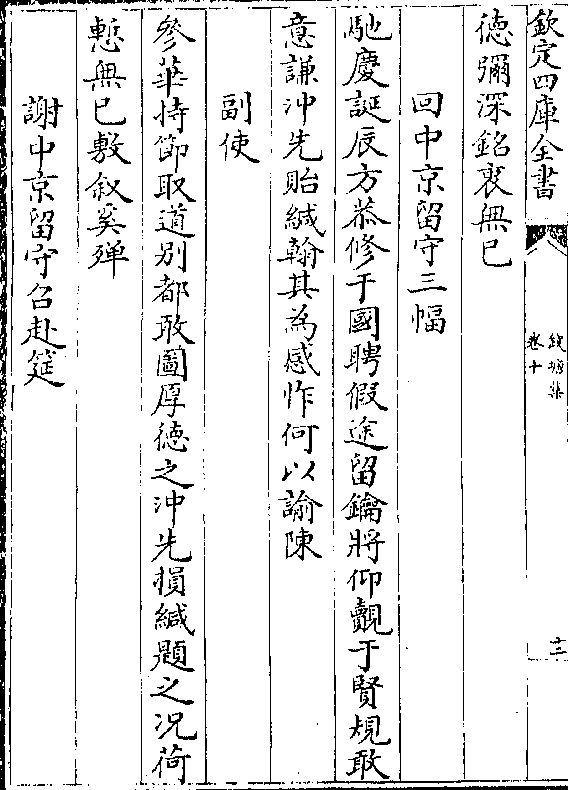 欽定四庫全書
錢塘集
卷十
十二
德彌深銘裏無已
回中京留守三幅
馳慶誕辰方恭修于國聘假途留鑰將仰覿于賢規敢
意謙冲先貽緘翰其為感怍何以諭陳
副使
叅華持節取道别都敢圖厚德之冲先損緘題之况荷
慙無已敷叙奚殫
謝中京留守召赴筵